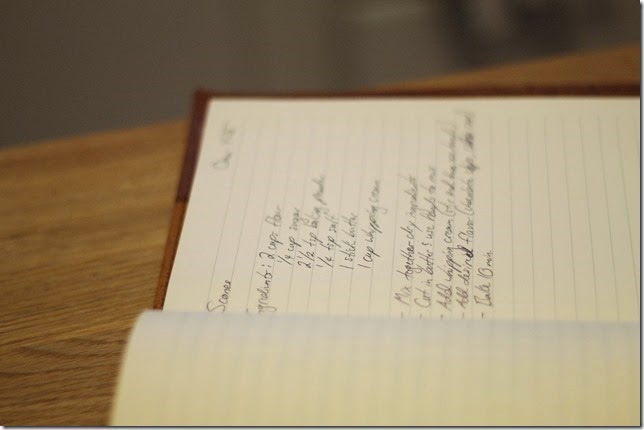 Scones
ngredients: 2 cups flour
1/4 cup sugar
2 1/2 tsp baking powder
1/4 tsp salt
1 stick butter
1 cup whipping cream
- Mix together dry ingredients
- Cut in butter & use hands to mix
- Add whipping cream
- Add desired flavor
- Bake min